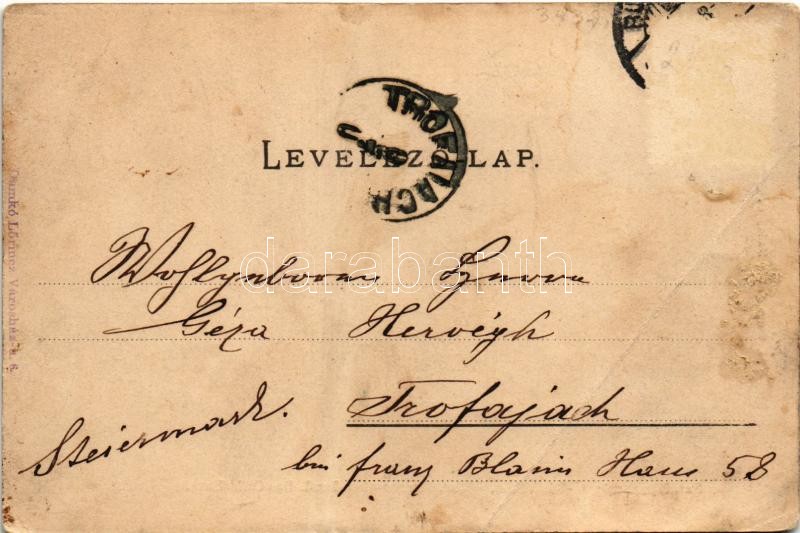 BU
TROFAIACH
LEVELEZŐ LAP.
darabanth
Wohlgeboren Herrn
Géza Hervégh
Trofajach
Steiermark.
bei Franz Blann Haus 58
Dunkó Lőrincz Városház-u. 6.